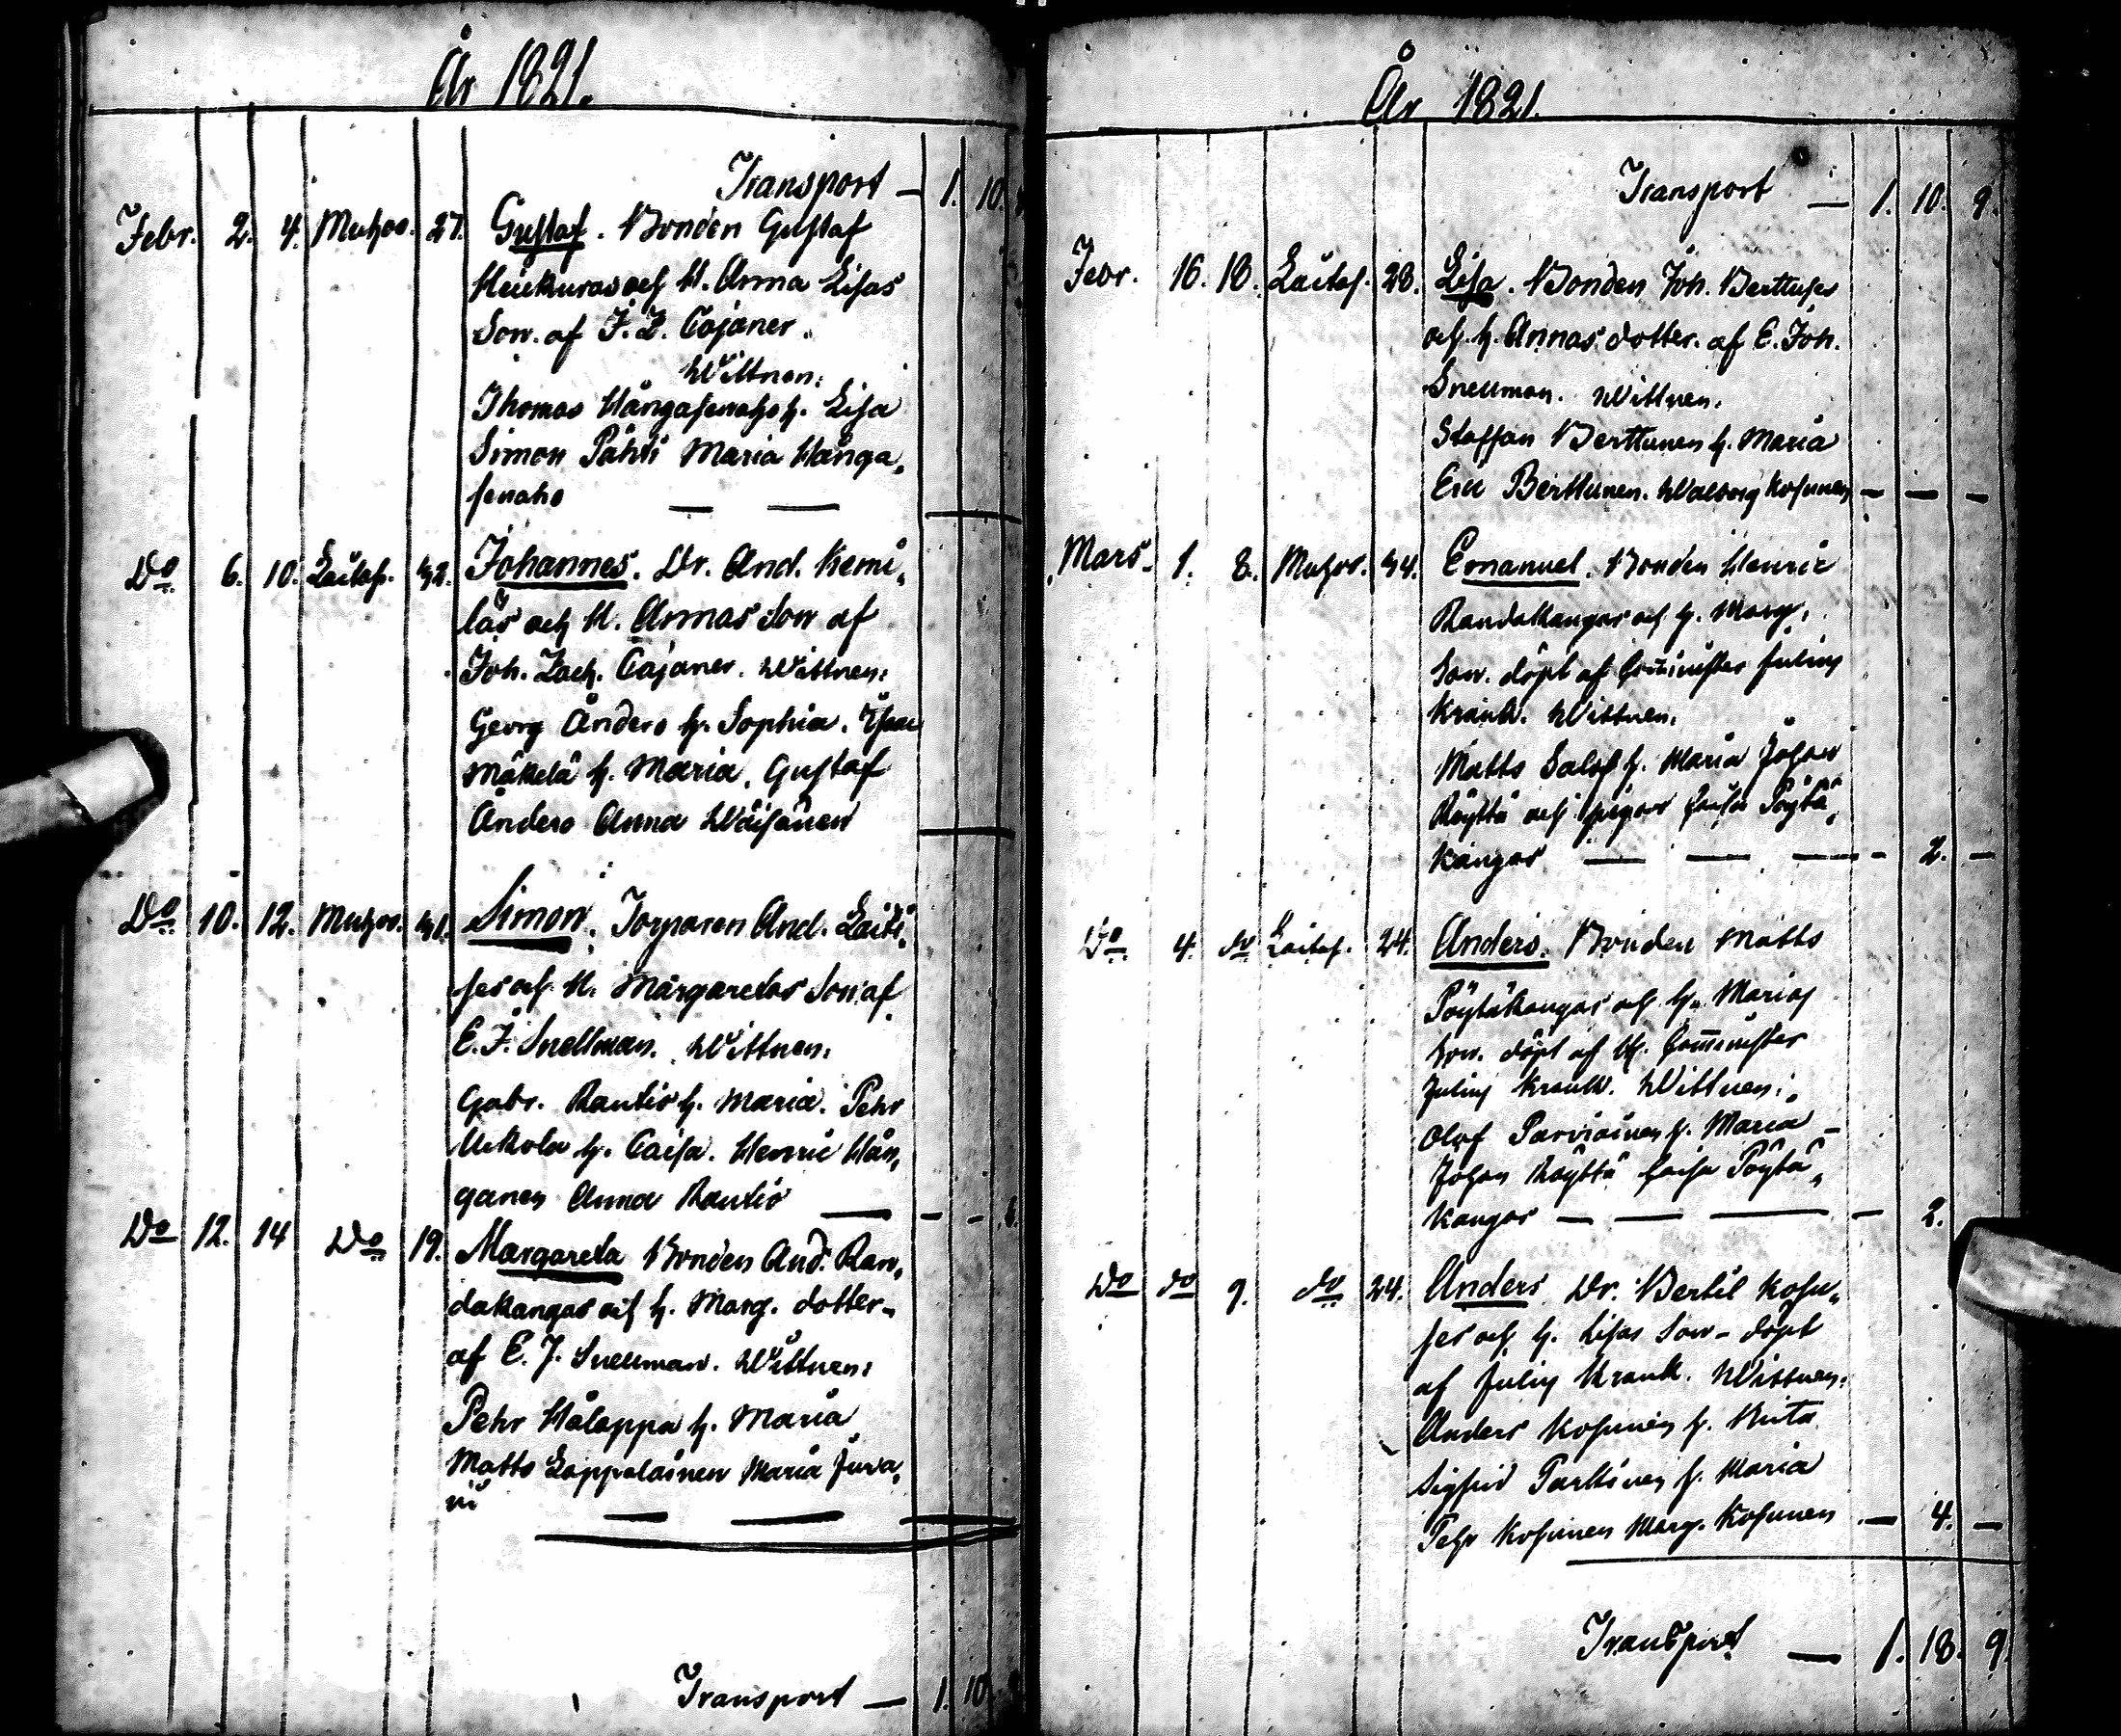 År 1821.
Transport — 1. 10.
Febr. 2. 4. Muhos. 27. Gustaf. Bonden Gustaf
Heikuras och H. Anna Lisas
Son. af J. Z. Cajaner.
Wittnen:
Thomas Hångasenaho h. Lisa
Simon Påhti Maria Hånga,
senaho — —
Do 6. 10. Laitas. 32. Johannes. Dr. And. Kemi,
läs och H. Annas Son af
Joh. Zach. Cajaner. Wittnen:
Georg Anders h. Sophia. Isaac
Mäkelä h. Maria. Gustaf
Anders Anna Wäisänen
Do 10. 12. Muhos. 31. Simon. Torparen And. Laiti,
ses och H. Margaretas Son af
E. J. Snellman. Wittnen:
Gabr. Rautio h. Maria. Pehr
Ukkola h. Caisa. Henric Hån,
ganen Anna Rautio — — - 6.
Do 12. 14 Do 19. Margareta Bonden And. Ran,
dakangas och h. Marg. dotter
af E. J. Snellman. Wittnen:
Pehr Håloppa h. Maria
Matts Lappalainen Maria Juva,
ni — —
Transport — 1. 10
År 1821.
Transport — 1. 10. 9.
Febr. 16. 18. Laitas. 28. Lisa. Bonden Joh. Berttuses
och h. Annas dotter. af E. Joh.
Snellman. Wittnen.
Staffan Berttunen h. Maria
Eric Berttunen. Walborg Kosunen — — —
Mars. 1. 8. Muhos. 34. Emanuel. Bonden Henric
Randakangas och h. Marg.
Son. döpt af Comminister Julius
Krank. Wittnen.
Matts Salo h. Maria Johan
Röyttä och pigan Caisa Pöytä,
kangas — — — - 2. —
Do 4. do Laitas. 24. Anders. Bonden Matts
Pöytäkangas och h. Marias
Son. döpt af H. Comminister
Julius Krank. Wittnen:
Olof Parviainen h. Maria —
Johan Röyttä Caisa Pöytä,
kangas — — — — 2.
Do do 9. do 24. Anders Dr. Bertil Kosu,
ses och h. Lisas Son — döpt
af Julius Krank. Wittnen:
Anders Kosunen h. Brita
Sigfrid Parkinen h. Maria
Pehr Kosunen Marg. Kosunen — 4. —
Transport — 1. 18. 9.